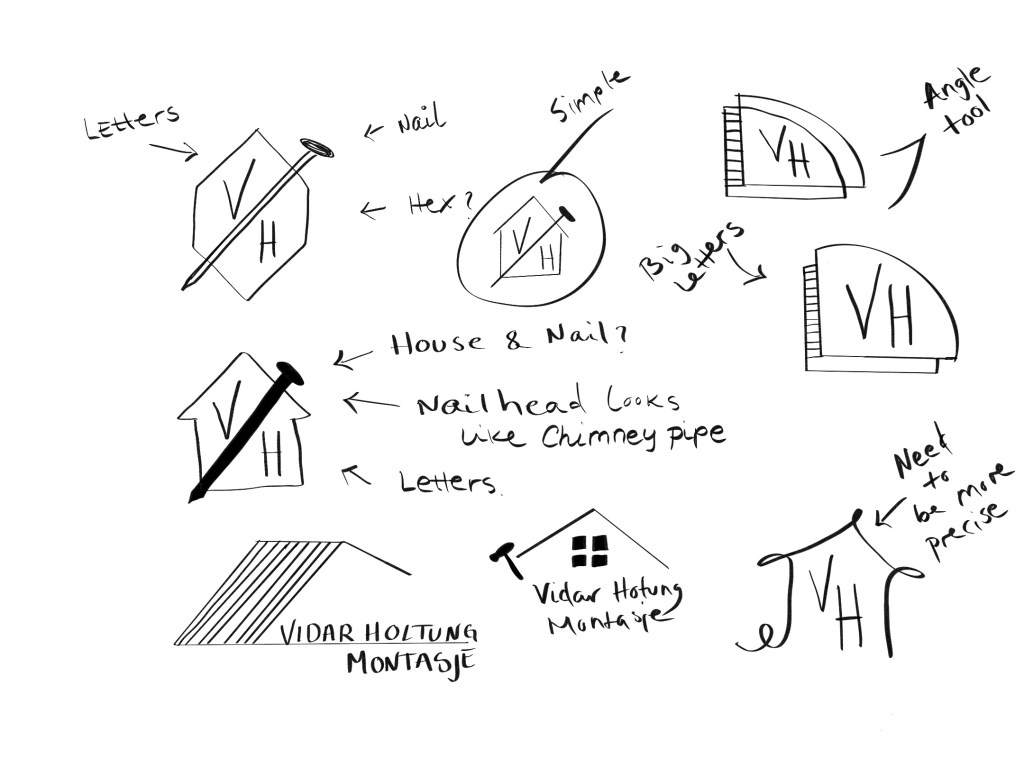 Letters
V
H
Nail
Hex?
Simple
V
H
V
H
Angle
tool
Big
Letters
VH
House & Nail?
Nailhead Looks
Like Chimney pipe
Letters.
V
H
Need
to
be more
precise
VIDAR HOLTUNG
MONTASJE
Vidar Hotung
Montasje
V
H